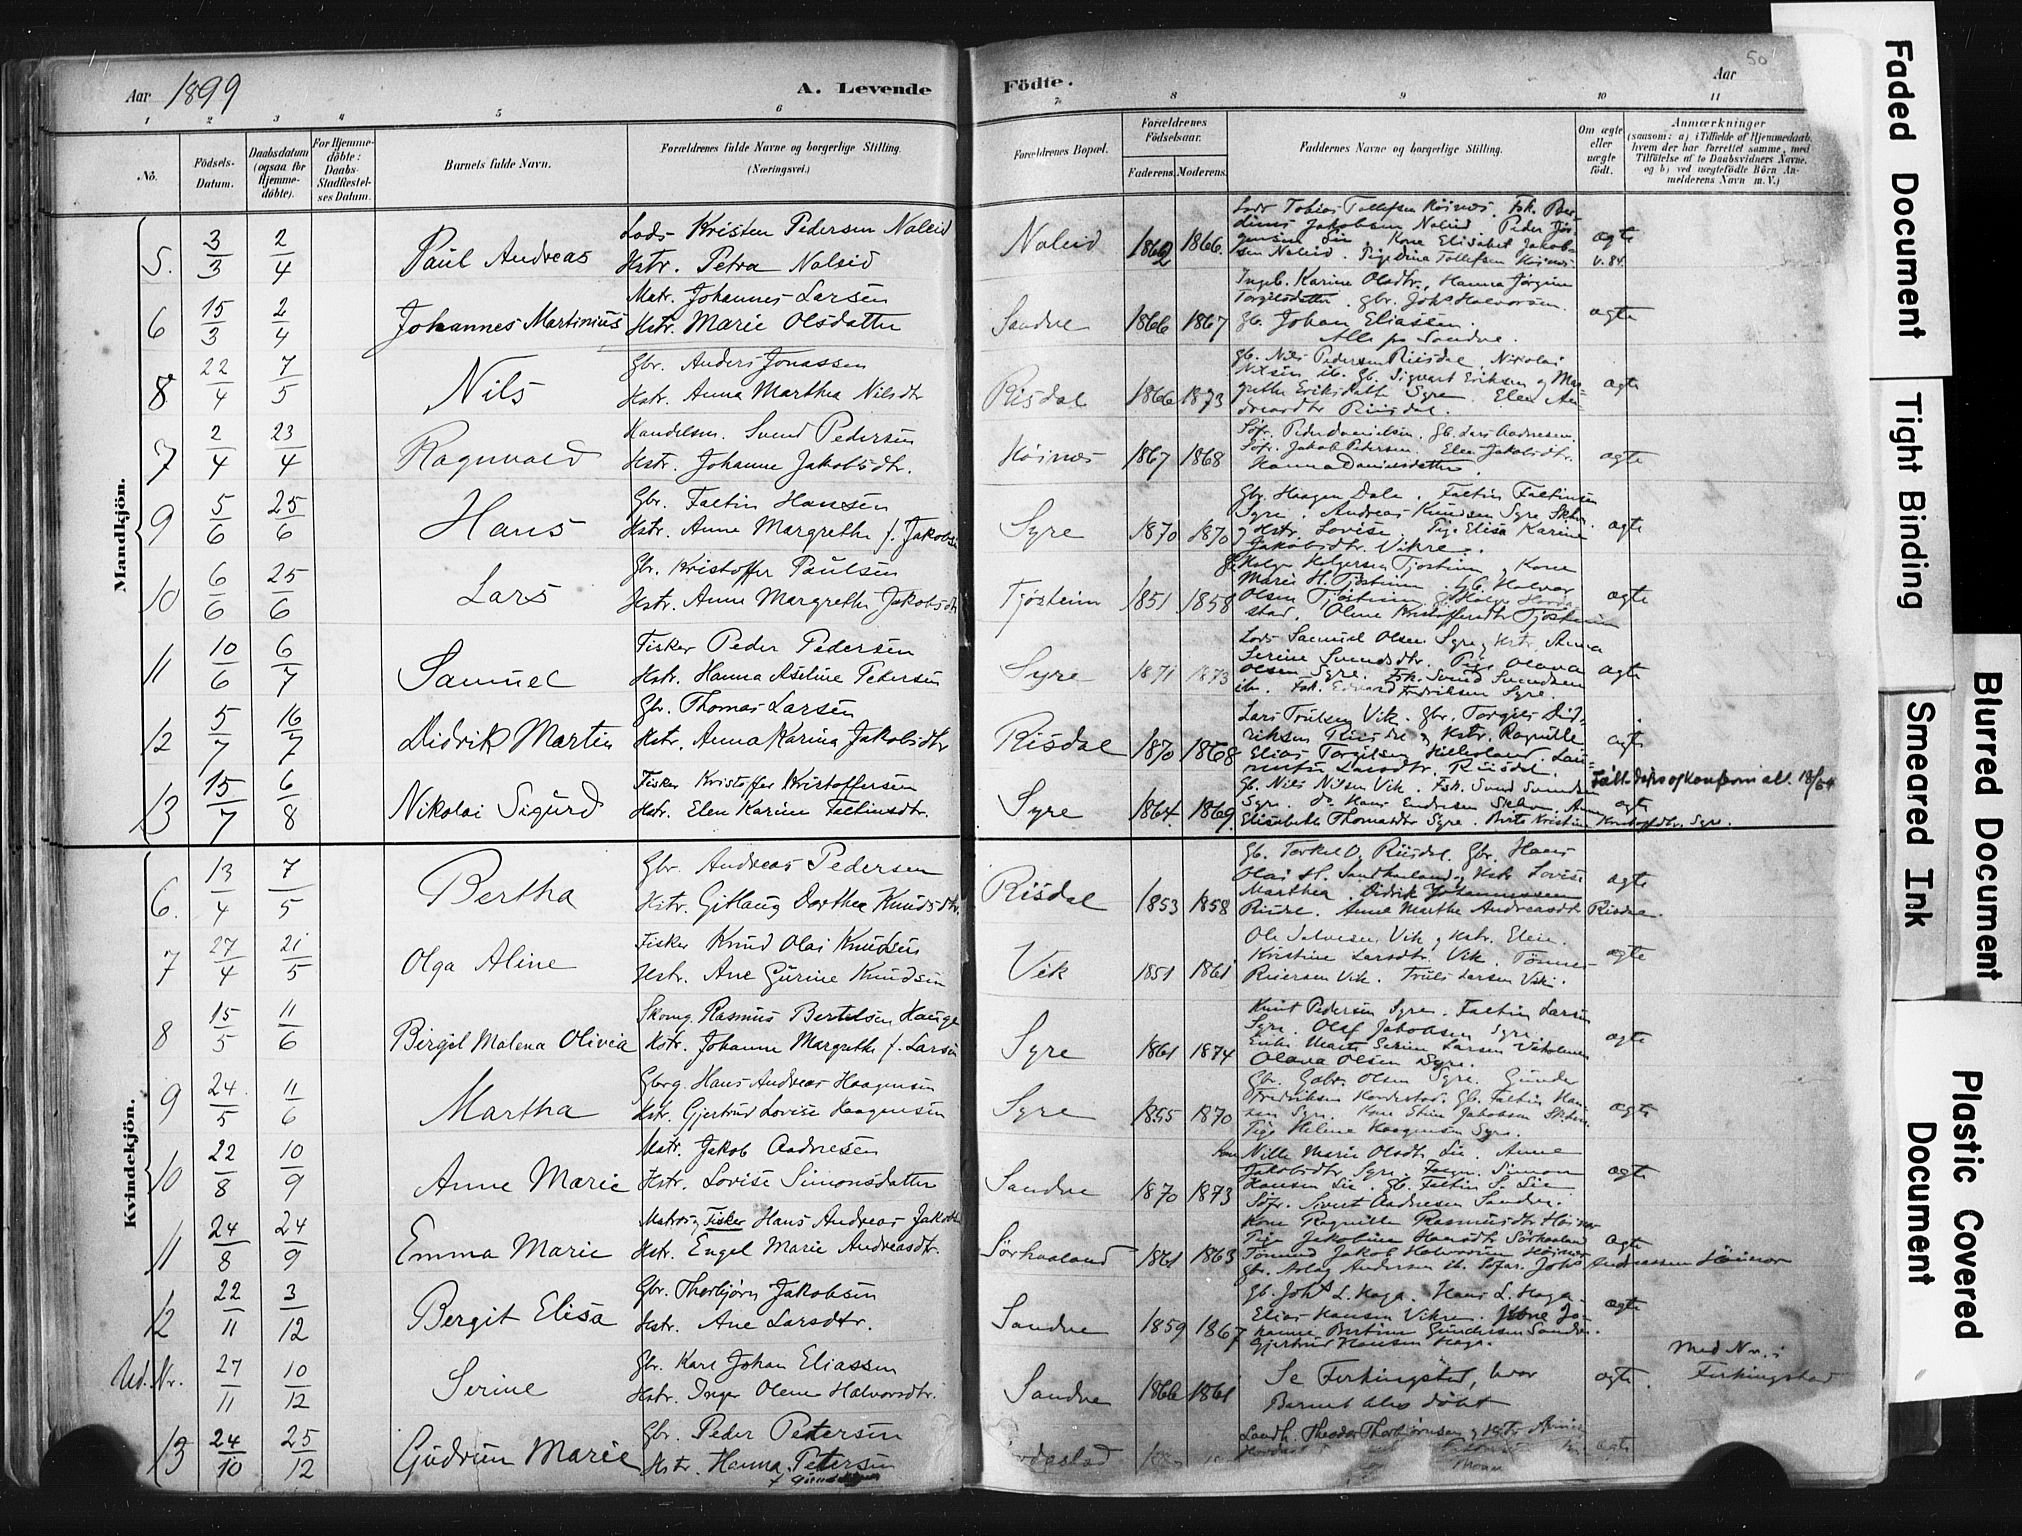 Aar 1899
A. Levende
Födte.
Aar
50
1 2 3 4 5 6 7 8 9 10 11
No.
Födsels-Datum.
Daabsdatum (ogsaa for Hjemme-döbte).
For Hjemme-döbte: Daabs-Stadfestel-ses Datum.
Barnets fulde Navn.
Forældrenes fulde Navne og borgerlige Stilling.
(Næringsvei.)
Forældrenes Bopæl.
Forældrenes Födselsaar.
Faderens. Moderens.
Faddernes Navne og borgerlige Stilling.
Om ægte eller uægte födt.
Anmærkninger
(saasom: a) i Tilfælde af Hjemmedaab, hvem der har forrettet samme, med Tilföielse af to Daabsvidners Navne, og b) ved uægtefödte Börn An-melderens Navn m. V.)
Mandkjön.
5. 3/3 2/4 Paul Andreas
Lods Kristen Pedersen Naleid
Hstr. Petra Naleid
Naleid 1862 1866.
Lods Tobias Tollefsen Høines.
ægte
6 15/3 2/4 Johannes Martinius
Matr. Johannes Larsen
Hstr. Marie Olsdatter
Sandve 1866 1867
Ingeb. Karine Olsdtr., Hanna Jørgine
Torgilsdatter. Gbr. Johs Halvorsen.
Gb. Johan Eliassen.
Alle paa Sandve.
ægte
8 22/4 7/5 Nils
Gbr. Anders Jonassen
Hstr. Anna Martha Nilsdtr
Risdal 1866 1873
Gb. Nils Pedersen Riisdal, Nikolai
Nilsen ib. Gb. Sigvart Eriksen og Mar-
grethe Eriksdatter Syre. Elen An-
dreasdtr Riisdal.
ægte
7 2/4 23/4 Ragnvald
Handelsm. Svend Pedersen
Hstr. Johanne Jakobsdtr.
Høines 1867 1868
Søfr. Peder Danielsen. Gb. Lars Aadnesen.
Søfr. Jakob Petersen. Elen Jakobsdtr.
Hanna Danielsdatter.
ægte
9 5/6 25/6 Hans
Gbr. Faltin Hansen
Hstr. Anne Margrethe f. Jakobsen
Syre 1870 1870
Gbr. Haagen Dale. Faltin Faltinsen
Syre. Andreas Knudsen Syre Skhn.
og Hstr. Lovise. Pige Elisa Karine
Jakobsdtr. Vikre.
ægte
10 6/6 25/6 Lars
Gbr. Kristoffer Paulsen
Hstr. Anne Margrethe Jakobsdtr
Tjøsheim 1851 1858
Marie H. Tjøsheim. Gb. Halvor
Olsen Tjøsheim
stad. Oline Kristoffersdtr Tjøsheim
ægte
11 10/6 6/7 Samuel
Fisker Peder Pedersen
Hstr. Hanna Aseline Petersen
Syre 1871 1873
Lods Samuel Olsen Syre og Hstr. Anna
Serine Svendsdtr. Pige Olava
Olsen Syre. Fsk. Svend Svendsen
ib. Fsk. Edvard Fredriksen Syre.
ægte
12 5/7 16/7 Didrik Martin
Gbr. Thomas Larsen
Hstr. Anna Karina Jakobsdtr
Risdal 1870 1868
Lars Truelsen Vik. Gbr. Torgils Did-
riksen Riisdal og Hstr. Ragnille
Elias Torgilsen
Larsdtr. Riisdal.
ægte
13 15/7 6/8 Nikolai Sigurd
Fisker Kristoffer Kristoffersen
Hstr. Elen Karine Faltinsdtr.
Syre 1864. 1869.
Gb. Nils Nilsen Vik. Fsk. Svend Svendsen
Syre. do Hans Endresen Skhn. Anne
Elisabeth Thomasdtr Syre. Berte Kristine Kristoffdtr. Syre.
ægte
Kvindekjön.
6. 13/4 7/5 Bertha
Gbr. Andreas Pedersen
Hstr. Gitlaug Dorthea Knudsdtr.
Risdal 1853 1858
Gb. Torkel O. Riisdal. Gbr. Hans
Olai H. Sandhaaland og Hstr. Lovise
Marthea. Didrik Johannessen
Risdal. Anne Marthe Andreasdtr Risdal.
ægte
7 27/4 21/5 Olga Aline
Fisker Knud Olai Knudsen
Hstr. Ane Gurine Knudsen
Vik 1851 1861
Ole Salvesen Vik og Hstr. Elen.
Kristine Larsdtr. Vik. Tønnes
Reiersen Vik. Truls Larsen Vik.
ægte
8 15/5 11/6 Birgit Malena Olivia
Skomg. Rasmus Bertelsen Hauge
Hstr. Johanne Margrethe f. Larsen
Syre 1861 1874
Knut Pedersen Syre. Faltin Larsen
Syre. Olef Jakobsen Syre.
Enke Marte Serine Larsen Vikholmen
Olava Olsen Syre.
ægte
9 24/5 11/6 Martha
Gbrg. Hans Andreas Haagensen
Hstr. Gjertrud Lovise Haagensen
Syre 1855 1870
Gbr. Gabr. Olsen Syre. Gunder
Fredriksen Hordestad. Gb. Faltin Han-
sen Syre. Kone Stine Jakobsen Skhn.
Pige Helene Haagensen Syre.
ægte
10 22/8 10/9 Anne Marie
Matr. Jakob Aadnesen
Hstr. Lovise Simonsdatter
Sandve 1870 1873
Kone Nille Marie Olsdtr Lie. Anne
Jakobsdtr. Syre. Simon
Hansen Lie. Gb. Faltin S. Lie
Søfr. Sivert Aadnesen Sandve.
ægte
11 24/8 24/9 Emma Marie
Matros og Fisker Hans Andreas Jakobsen
Hstr. Engel Marie Andreasdtr.
Sørhaaland 1861 1863
Kone Ragnille Rasmusdtr Høines
Pige Jakobine Hansdtr Sørhaaland
Tømmerm. Jakob Halvorsen Høines
Gbr. Aslag Andersen ib. Søfar. Johs Andreassen Høines
ægte
12 22/11 3/12 Bergit Elisa
Gbr. Thorbjørn Jakobsen
Hstr. Ane Larsdtr.
Sandve 1859 1867
Gb. Johs L. Haga. Hans L. Haga.
Elias Hansen Vikre. Kone Jo-
hanne Bertine Gundersen Sandve.
Gjertrud Hansen Haga.
ægte
Ud. Nr. 27/11 10/12 Serine
Gbr. Karl Johan Eliassen
Hstr. Inger Olene Halvorsdtr.
Sandve 1866 1861
Se Ferkingstad, hvor
Barnet blev døbt
ægte.
Med Nr. i
Ferkingstad
13 24/10 25/12 Gudrun Marie
Gbr. Peder Petersen
Hstr. Hanna Petersen
Landh. Theodor Thorbjørnsen og Hstr.
ægte
Faded Document
Tight Binding
Blurred Document
Smeared Ink
Plastic Covered Document